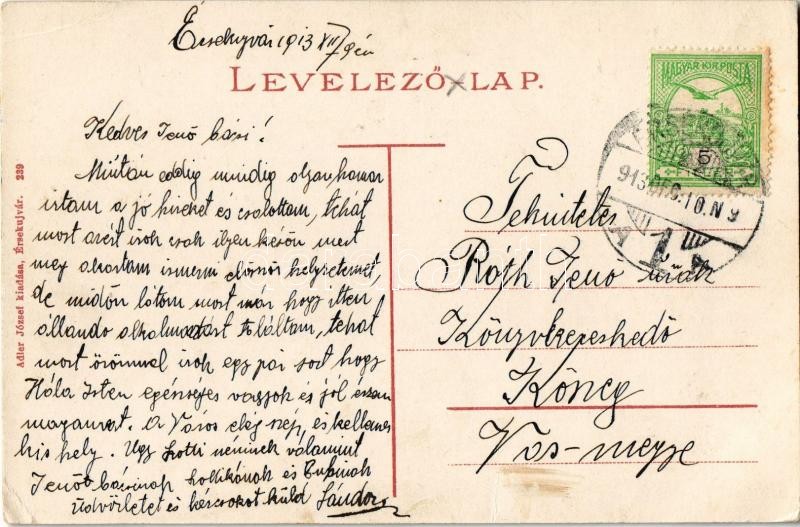 Érsekujvár 1913 XII/9én
LEVELEZŐ LAP.
MAGYAR KIR. POSTA
5
913 DEC. 10. N 9
Kedves Jenő bácsi!
Miután eddig mindig olyan hamar
irtam a jó hireket és csalottam, tehát
most azért irok csak ilyen későn mert
meg akartam ismerni először helyzetemet,
de midőn látom most már hogy itten
állandó alkalmazást találtam, tehát
most örömmel irok egy pár sort hogy
Hála Isten egészséges vagyok és jól érzem
magamat. A Város elég szép, és kellemes
kis hely. Ugy Lotti néninek valamint
Jenő bácsinap és
üdvözletet és kézcsokot küld Sándor
Tekintetes
Róth Jenő urnak
Könyvkereskedő
Vas-megye
Adler József kiadása, Érsekujvár. 239